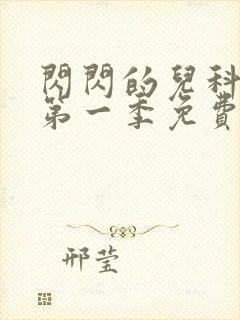 閃閃的兒科
第一季免費
邢莹